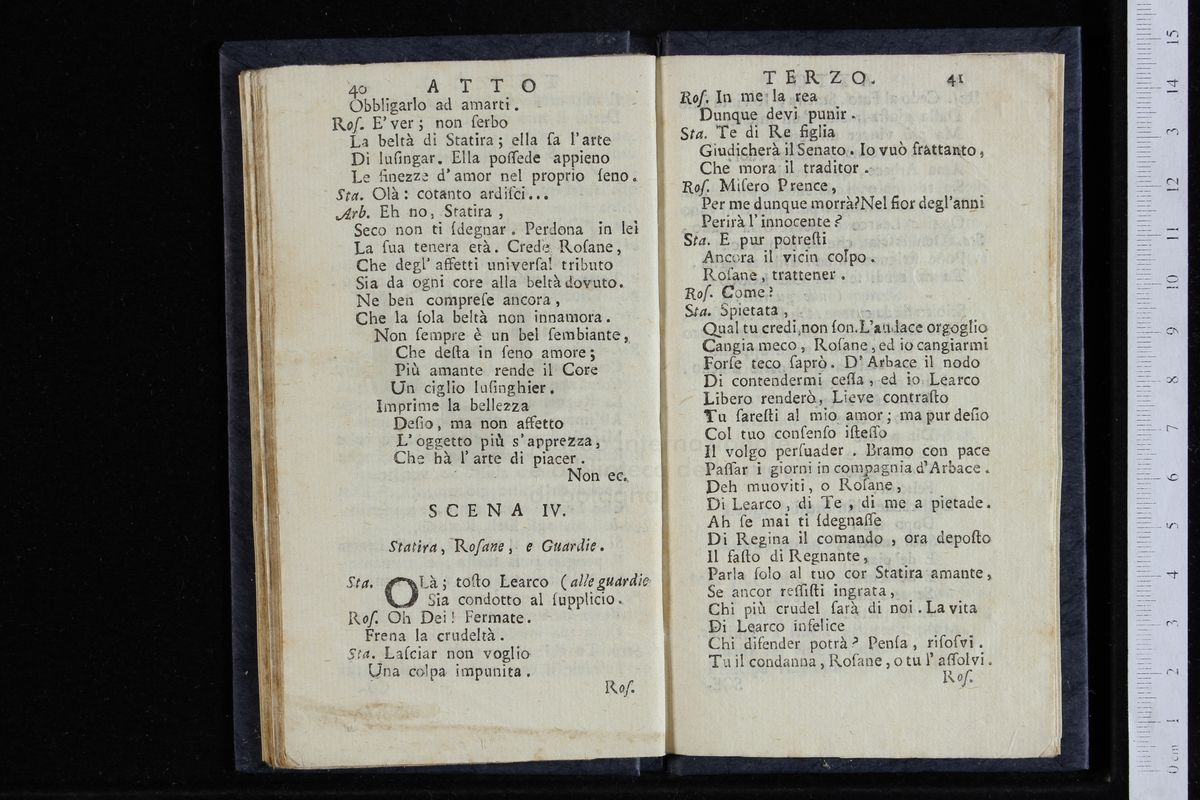 40 ATTO
Obbligarlo ad amarti.
Roſ. E'ver; non ſerbo
La beltà di Statira; ella ſa l'arte
Di luſingar. Ella poſſede appieno
Le finezze d'amor nel proprio ſeno.
Sta. Olà: cotanto ardiſci...
Arb. Eh no, Statira,
Seco non ti ſdegnar. Perdona in lei
La ſua tenera età. Crede Roſane,
Che degl' affetti univerſal tributo
Sia da ogni core alla beltà dovuto.
Ne ben compreſe ancora,
Che la ſola beltà non innamora.
Non ſempre è un bel ſembiante,
Che deſta in ſeno amore;
Più amante rende il Core
Un ciglio luſinghier.
Imprime la bellezza
Deſio, ma non affetto
L'oggetto più s'apprezza,
Che hà l'arte di piacer.
Non ec.
SCENA IV.
Statira, Roſane, e Guardie.
Sta. OLà; toſto Learco (alle guardie
Sia condotto al ſupplicio.
Roſ. Oh Dei! Fermate.
Frena la crudeltà.
Sta. Laſciar non voglio
Una colpa impunita.
Roſ.
TERZO. 41
Roſ. In me la rea
Dunque devi punir.
Sta. Te di Re figlia
Giudicherà il Senato. Io vuò frattanto,
Che mora il traditor.
Roſ. Miſero Prence,
Per me dunque morrà? Nel fior degl'anni
Perirà l'innocente?
Sta. E pur potreſti
Ancora il vicin colpo.
Roſane, trattener.
Roſ. Come?
Sta. Spietata,
Qual tu credi, non ſon. L'audace orgoglio
Cangia meco, Roſane, ed io cangiarmi
Forſe teco ſaprò. D'Arbace il nodo
Di contendermi ceſſa, ed io Learco
Libero renderò, Lieve contraſto
Tu ſareſti al mio amor; ma pur deſio
Col tuo conſenſo iſteſſo
Il volgo perſuader. Bramo con pace
Paſſar i giorni in compagnia d'Arbace.
Deh muoviti, o Roſane,
Di Learco, di Te, di me a pietade.
Ah ſe mai ti ſdegnaſſe
Di Regina il comando, ora depoſto
Il faſto di Regnante,
Parla ſolo al tuo cor Statira amante,
Se ancor reſſiſti ingrata,
Chi più crudel ſarà di noi. La vita
Di Learco infelice
Chi difender potrà? Penſa, riſolvi.
Tu il condanna, Roſane, o tu l'aſſolvi.
Roſ.